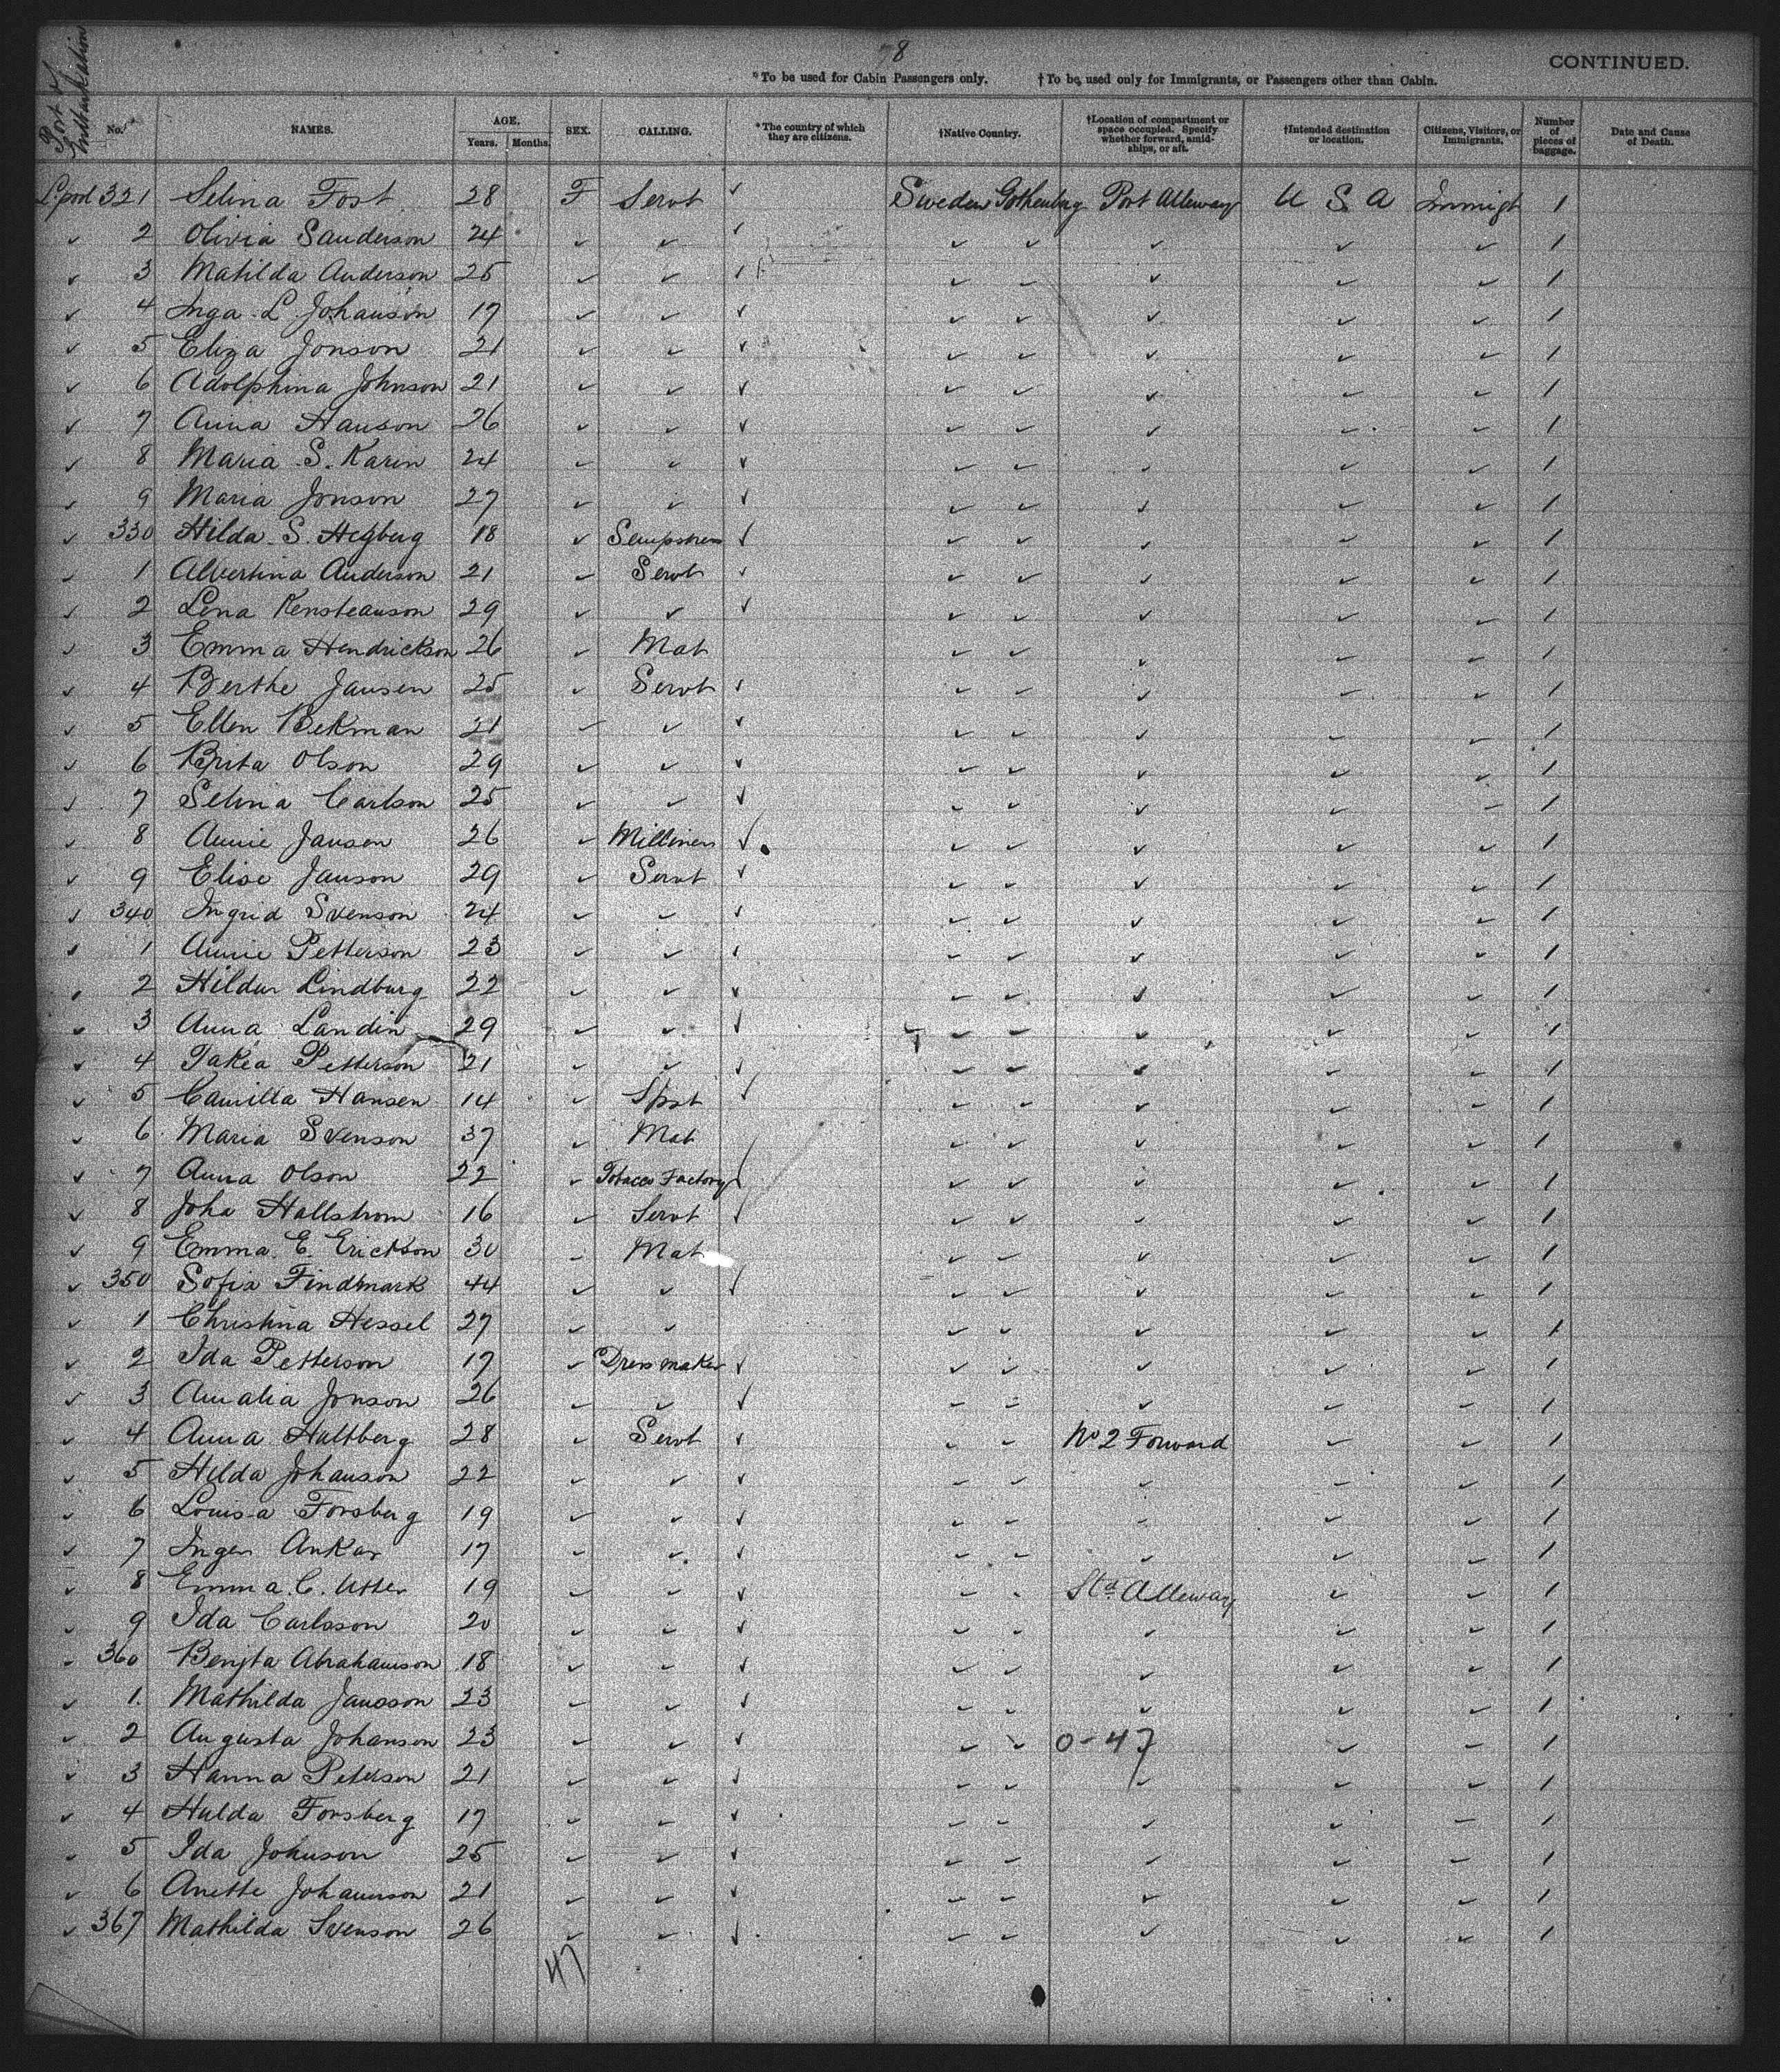 8
CONTINUED.
*To be used for Cabin Passengers only. †To be used only for Immigrants, or Passengers other than Cabin.
Port of Embarkation
No. NAMES. AGE. Years. Months. SEX. CALLING. *The country of which they are citizens. †Native Country. †Location of compartment or space occupied. Specify whether forward, amidships, or aft. †Intended destination or location. Citizens, Visitors, or Immigrants. Number of pieces of baggage. Date and Cause of Death.
L'pool 321 Selina Fost 28 F Servt ✓ Sweden Gothenburg Port Alleway U S A Immigt 1
✓ 2 Olivia Sanderson 24 ✓ ✓ ✓ ✓ ✓ ✓ ✓ ✓ 1
✓ 3 Matilda Anderson 25 ✓ ✓ ✓ ✓ ✓ ✓ ✓ ✓ 1
✓ 4 Inga L Johanson 17 ✓ ✓ ✓ ✓ ✓ ✓ ✓ ✓ 1
✓ 5 Eliza Jonson 21 ✓ ✓ ✓ ✓ ✓ ✓ ✓ ✓ 1
✓ 6 Adolphina Johnson 21 ✓ ✓ ✓ ✓ ✓ ✓ ✓ ✓ 1
✓ 7 Anna Hanson 26 ✓ ✓ ✓ ✓ ✓ ✓ ✓ ✓ 1
✓ 8 Maria S. Karin 24 ✓ ✓ ✓ ✓ ✓ ✓ ✓ ✓ 1
✓ 9 Maria Jonson 27 ✓ ✓ ✓ ✓ ✓ ✓ ✓ ✓ 1
✓ 330 Hilda S. Hegberg 18 ✓ Sempstress ✓ ✓ ✓ ✓ ✓ ✓ 1
✓ 1 Albertina Anderson 21 ✓ Servt ✓ ✓ ✓ ✓ ✓ ✓ 1
✓ 2 Lena Kensteanson 29 ✓ ✓ ✓ ✓ ✓ ✓ ✓ ✓ 1
✓ 3 Emma Hendrickson 26 ✓ Mat ✓ ✓ ✓ ✓ ✓ 1
✓ 4 Berthe Jansen 25 ✓ Servt ✓ ✓ ✓ ✓ ✓ ✓ 1
✓ 5 Ellen Bekman 21 ✓ ✓ ✓ ✓ ✓ ✓ ✓ ✓ 1
✓ 6 Brita Olson 29 ✓ ✓ ✓ ✓ ✓ ✓ ✓ ✓ 1
✓ 7 Selina Carlson 25 ✓ ✓ ✓ ✓ ✓ ✓ ✓ ✓ 1
✓ 8 Annie Janson 26 ✓ Milliner ✓ ✓ ✓ ✓ ✓ ✓ 1
✓ 9 Elise Janson 29 ✓ Servt ✓ ✓ ✓ ✓ ✓ ✓ 1
✓ 340 Ingrid Svenson 24 ✓ ✓ ✓ ✓ ✓ ✓ ✓ ✓ 1
✓ 1 Annie Petterson 23 ✓ ✓ ✓ ✓ ✓ ✓ ✓ ✓ 1
✓ 2 Hildur Lindburg 22 ✓ ✓ ✓ ✓ ✓ ✓ ✓ ✓ 1
✓ 3 Anna Landin 29 ✓ ✓ ✓ ✓ ✓ ✓ ✓ ✓ 1
✓ 4 Takea Petterson 21 ✓ ✓ ✓ ✓ ✓ ✓ ✓ ✓ 1
✓ 5 Camilla Hansen 14 ✓ Spst ✓ ✓ ✓ ✓ ✓ ✓ 1
✓ 6 Maria Svenson 37 ✓ Mat ✓ ✓ ✓ ✓ ✓ 1
✓ 7 Anna Olson 22 ✓ Tobacco Factory ✓ ✓ ✓ ✓ ✓ ✓ 1
✓ 8 Joha Hallstrom 16 ✓ Servt ✓ ✓ ✓ ✓ ✓ ✓ 1
✓ 9 Emma E. Erickson 30 ✓ Mat ✓ ✓ ✓ ✓ ✓ 1
✓ 350 Sofia Findmark 44 ✓ ✓ ✓ ✓ ✓ ✓ ✓ ✓ 1
✓ 1 Christina Hessel 27 ✓ ✓ ✓ ✓ ✓ ✓ ✓ 1
✓ 2 Ida Petterson 17 ✓ Dressmaker ✓ ✓ ✓ ✓ ✓ ✓ 1
✓ 3 Amalia Jonson 26 ✓ ✓ ✓ ✓ ✓ ✓ ✓ ✓ 1
✓ 4 Anna Hultberg 28 ✓ Servt ✓ ✓ ✓ No 2 Forward ✓ ✓ 1
✓ 5 Hilda Johanson 22 ✓ ✓ ✓ ✓ ✓ ✓ ✓ ✓ 1
✓ 6 Louisa Forsberg 19 ✓ ✓ ✓ ✓ ✓ ✓ ✓ ✓ 1
✓ 7 Inger Ankar 17 ✓ ✓ ✓ ✓ ✓ ✓ ✓ ✓ 1
✓ 8 Emma C. Utter 19 ✓ ✓ ✓ ✓ ✓ Std Alleway ✓ ✓ 1
✓ 9 Ida Carlsson 20 ✓ ✓ ✓ ✓ ✓ ✓ ✓ ✓ 1
✓ 360 Benjta Abrahamson 18 ✓ ✓ ✓ ✓ ✓ ✓ ✓ ✓ 1
✓ 1. Mathilda Jansson 23 ✓ ✓ ✓ ✓ ✓ ✓ ✓ ✓ 1
✓ 2 Augusta Johanson 23 ✓ ✓ ✓ ✓ ✓ 0-47 ✓ ✓ 1
✓ 3 Hanna Peterson 21 ✓ ✓ ✓ ✓ ✓ ✓ ✓ ✓ 1
✓ 4 Hulda Forsberg 17 ✓ ✓ ✓ ✓ ✓ ✓ ✓ ✓ 1
✓ 5 Ida Johnson 25 ✓ ✓ ✓ ✓ ✓ ✓ ✓ ✓ 1
✓ 6 Anette Johannson 21 ✓ ✓ ✓ ✓ ✓ ✓ ✓ ✓ 1
✓ 367 Mathilda Svenson 26 ✓ ✓ ✓ ✓ ✓ ✓ ✓ ✓ 1
47